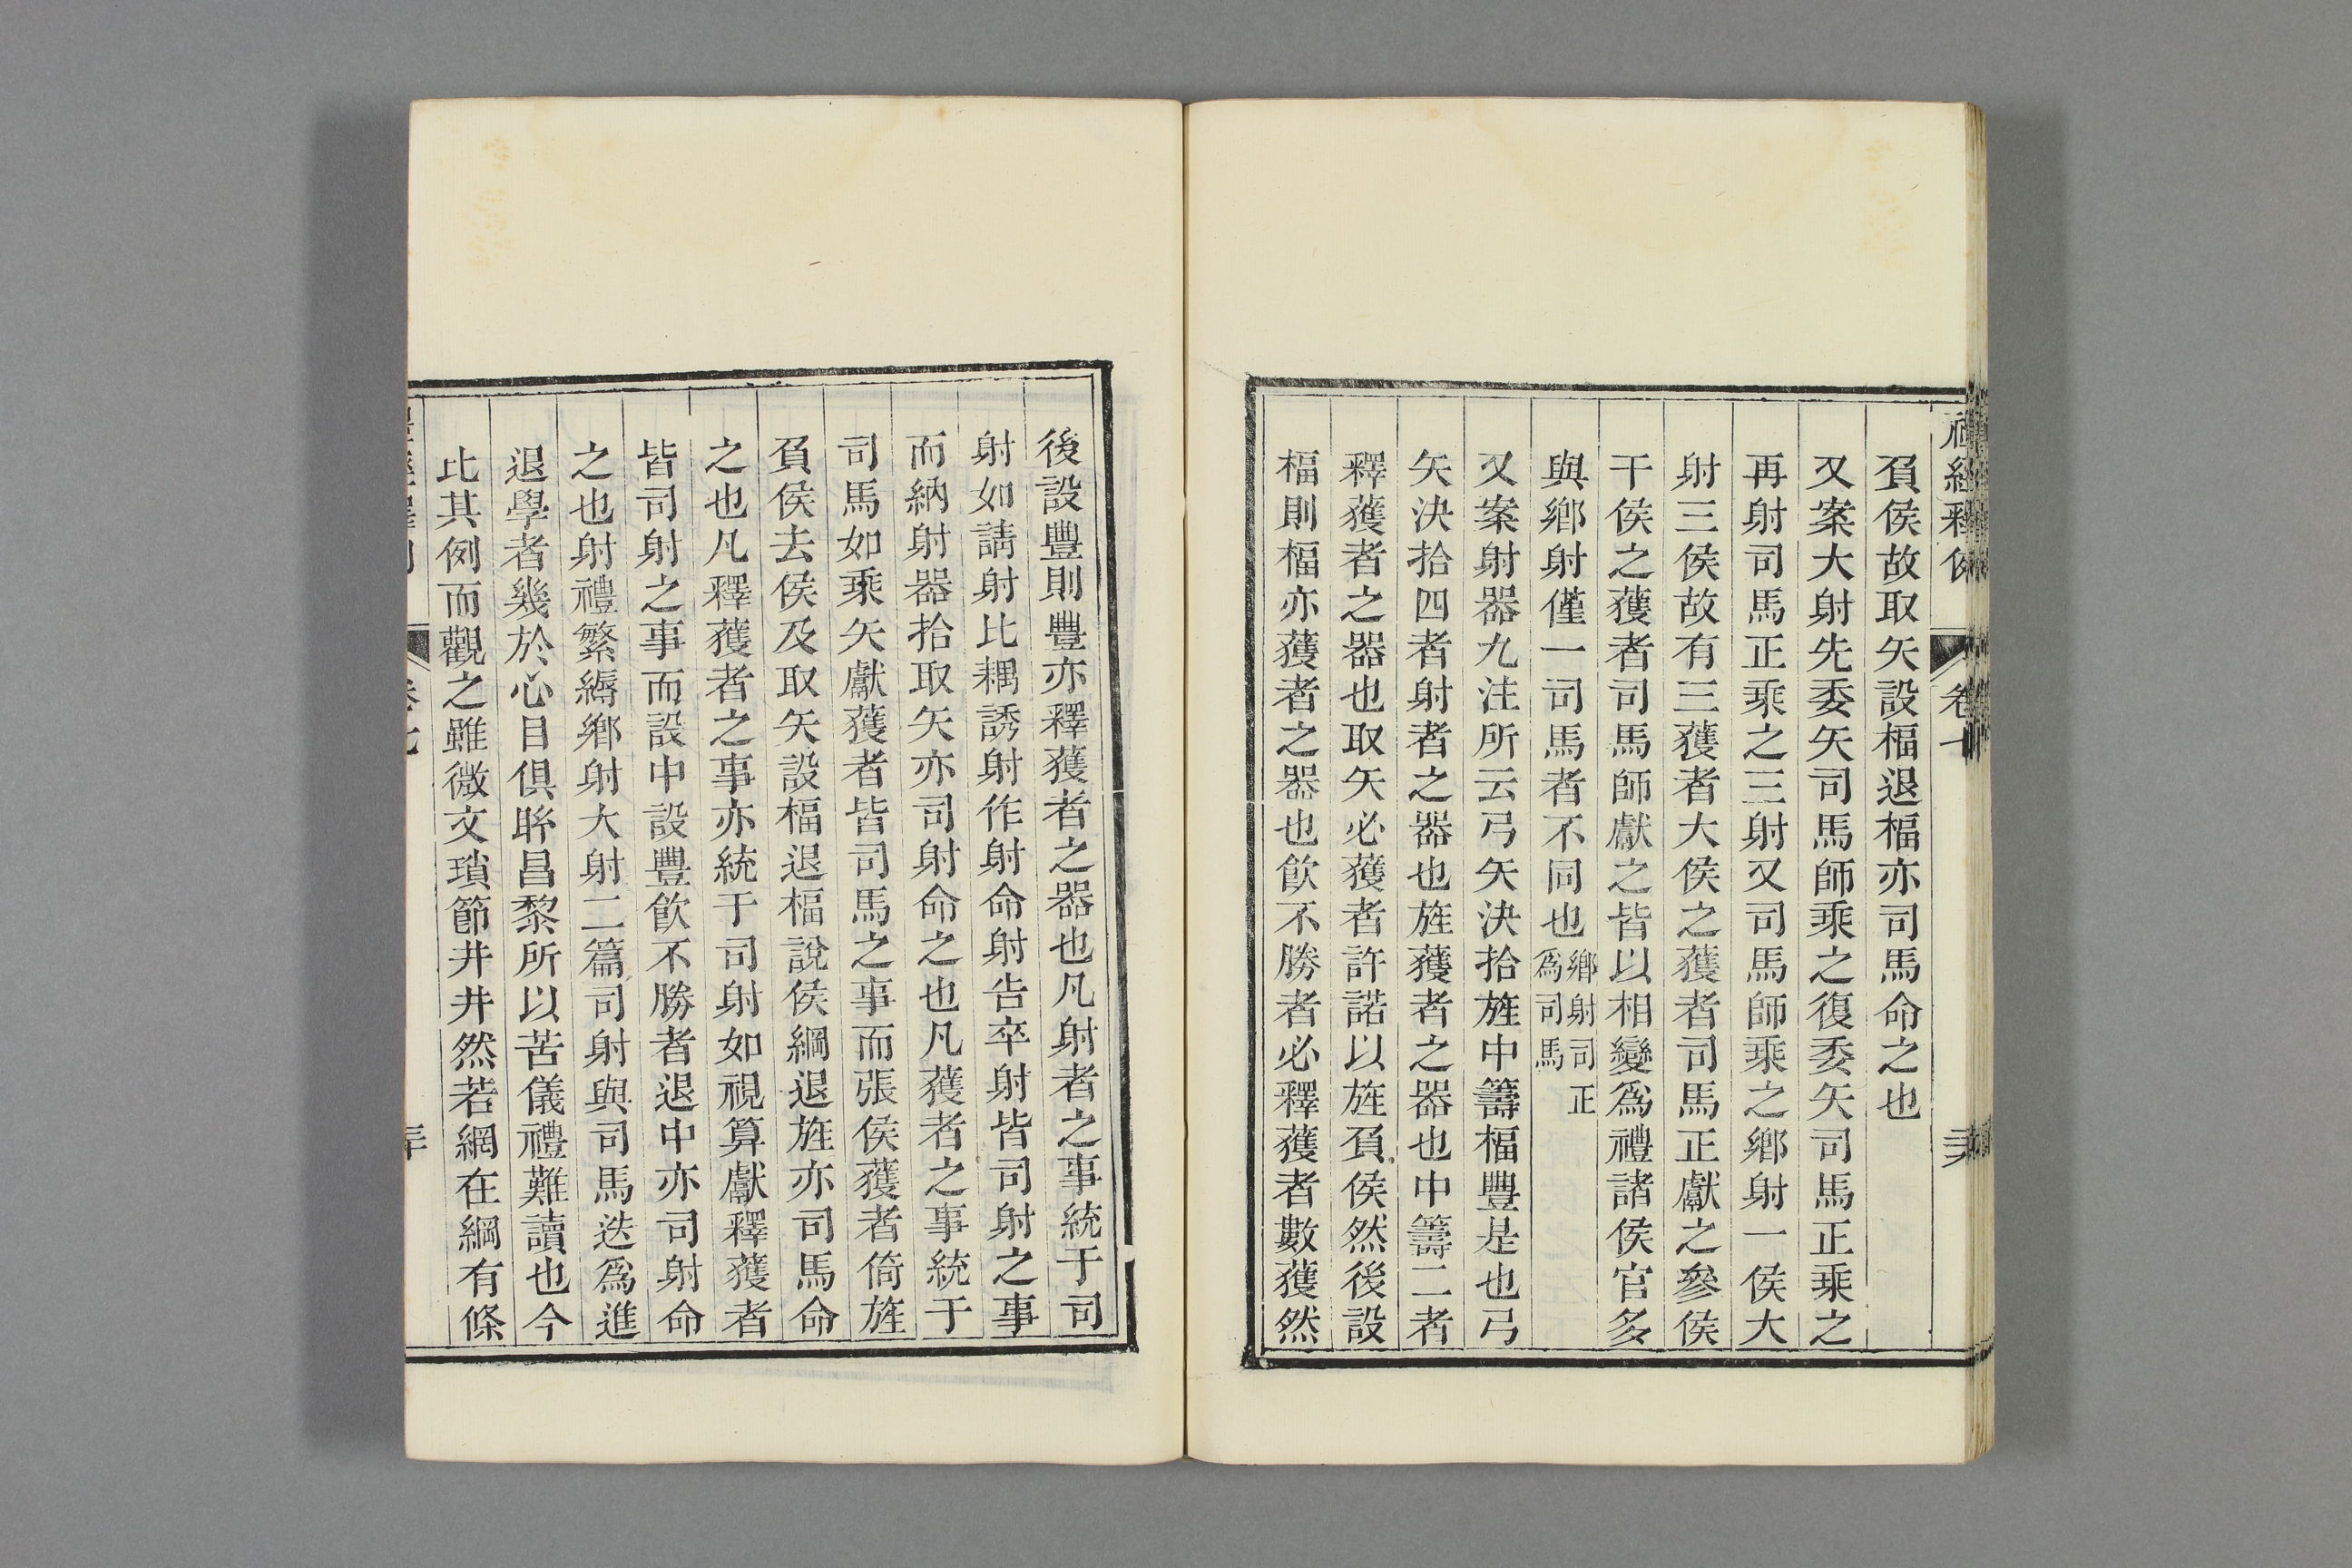 負侯故取矢設楅退楅亦司馬命之也
又案大射先委矢司馬師乘之復委矢司馬正乘之
再射司馬正乘之三射又司馬師乘之鄉射一侯大
射三侯故有三獲者大侯之獲者司馬正獻之參侯
干侯之獲者司馬師獻之皆以相變爲禮諸侯官多
與鄉射僅一司馬者不同也鄉射司正爲司馬
又案射器九注所云弓矢決拾旌中籌楅豐是也弓
矢決拾四者射者之器也旌獲者之器也中籌二者
釋獲者之器也取矢必獲者許諾以旌負侯然後設
楅則楅亦獲者之器也飮不勝者必釋獲者數獲然
後設豐則豐亦釋獲者之器也凡射者之事統于司
射如請射比耦誘射作射命射告卒射皆司射之事
而納射器拾取矢亦司射命之也凡獲者之事統于
司馬如乘矢獻獲者皆司馬之事而張侯獲者倚旌
負侯去侯及取矢設楅退楅說侯綱退旌亦司馬命
之也凡釋獲者之事亦統于司射如視算獻釋獲者
皆司射之事而設中設豐飮不勝者退中亦司射命
之也射禮繁縟鄉射大射二篇司射與司馬迭爲進
退學者幾於心目俱眩昌黎所以苦儀禮難讀也今
比其例而觀之雖微文瑣節井井然若網在綱有條